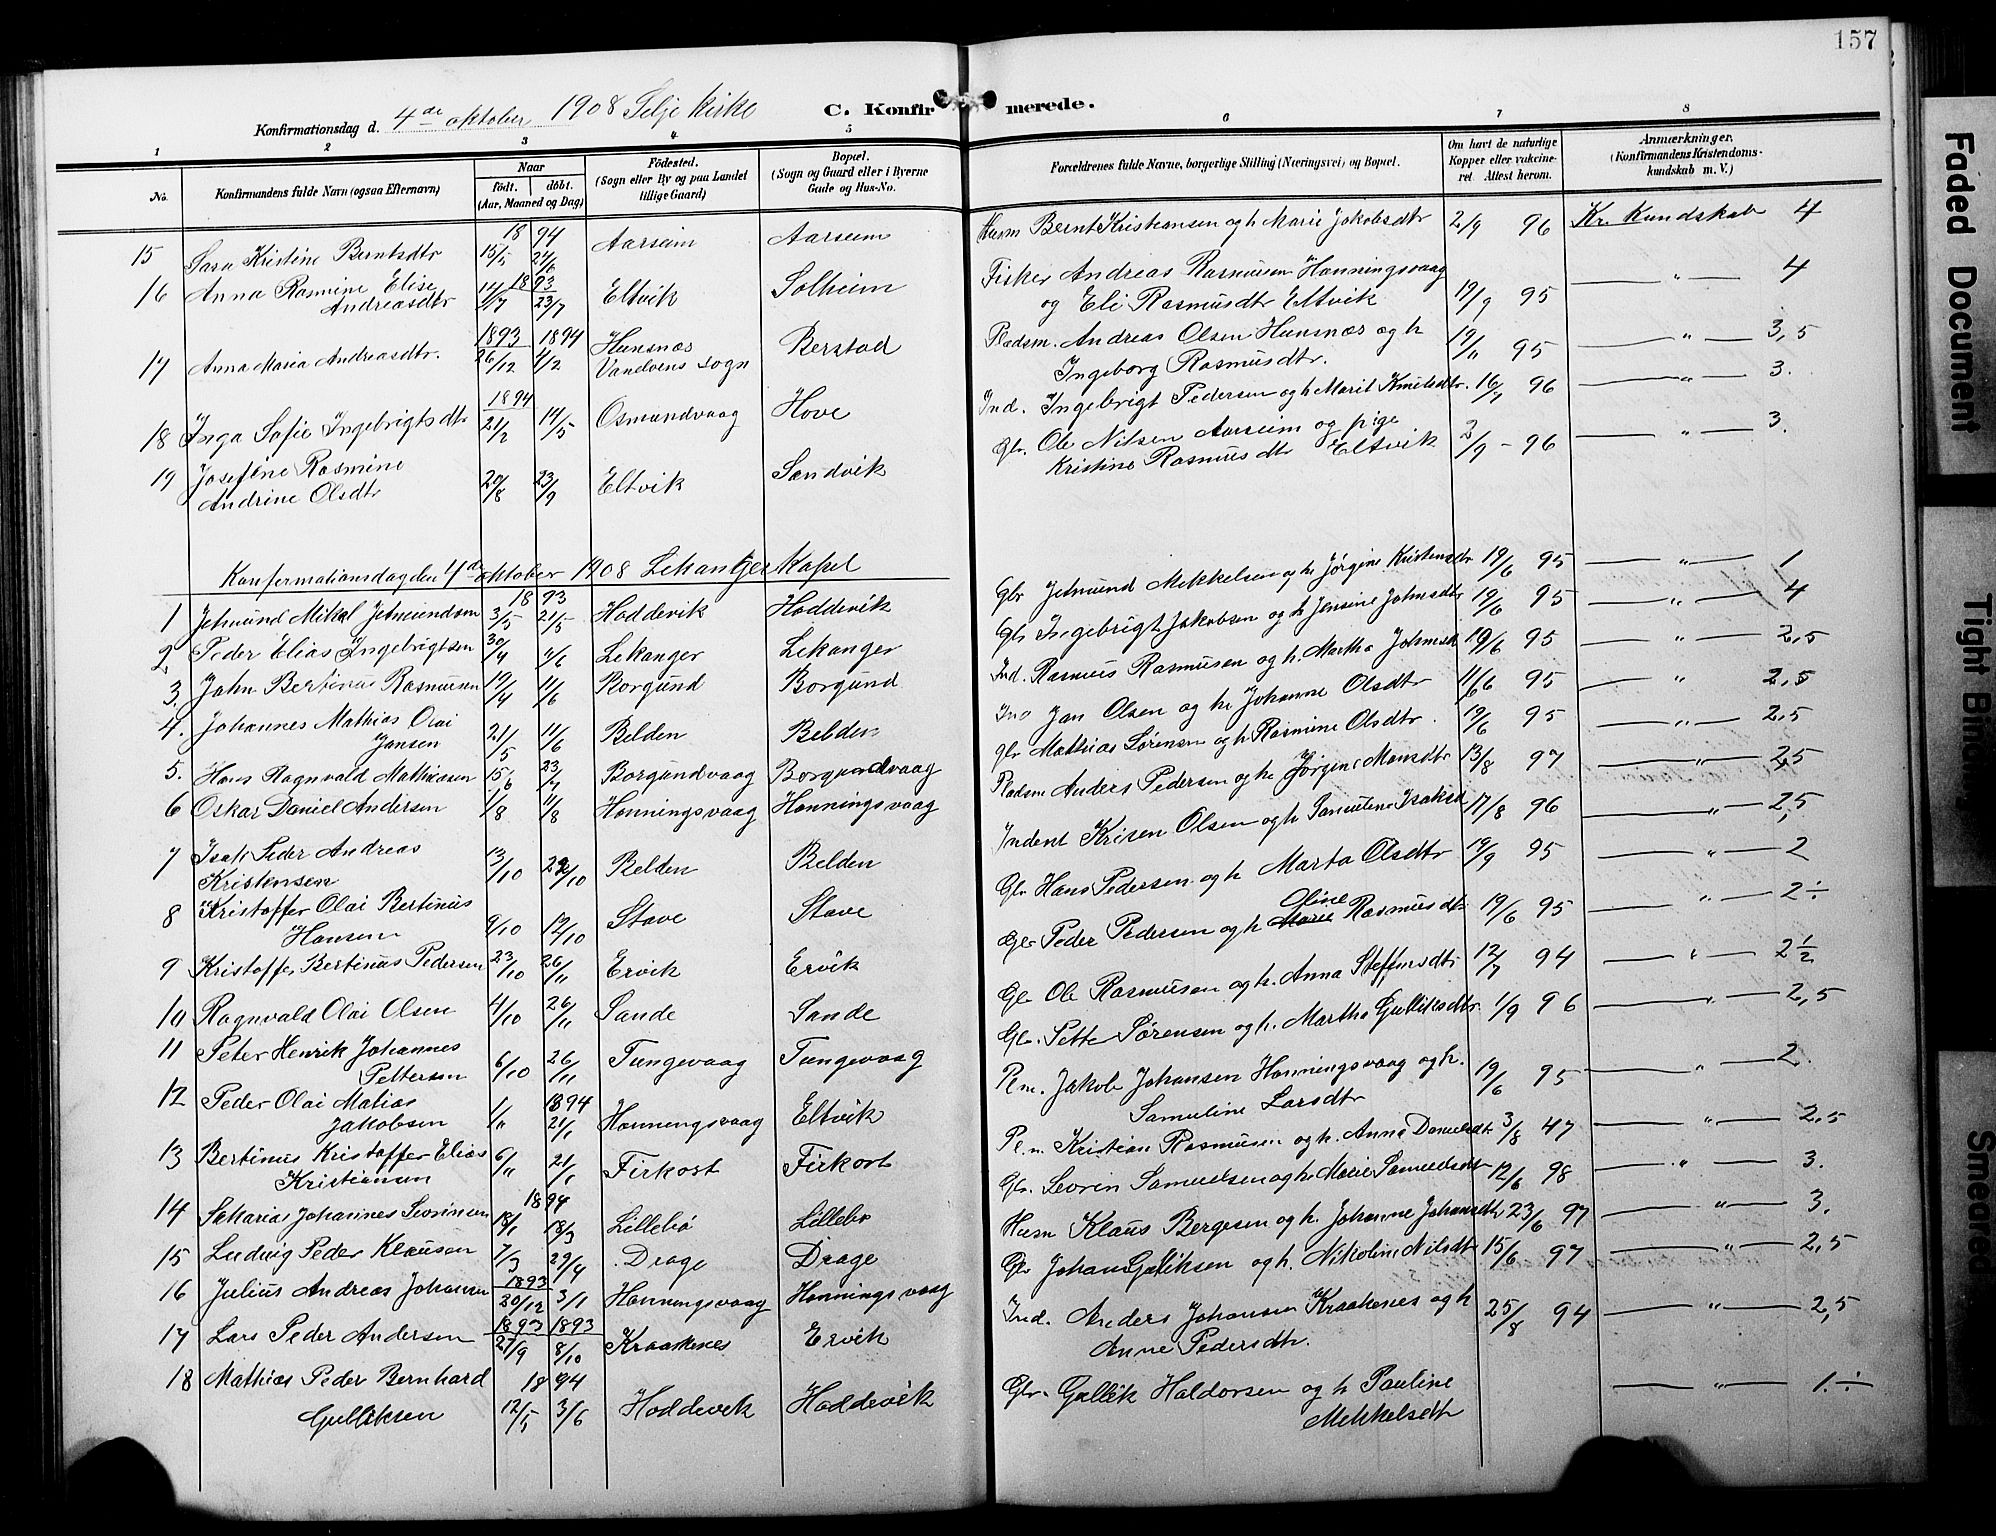 157
Konfirmationsdag d. 4de oktober 1908 Selje kirke
C. Konfirmerede.
1 2 3 4 5 6 7 8
No. Konfirmandens fulde Navn (ogsaa Efternavn) Naar født. døbt. (Aar, Maaned og Dag) Fødested. (Sogn eller By og paa Landet tillige Gaard) Bopæl. (Sogn og Gaard eller i Byerne Gade og Hus-No. Forældrenes fulde Navne, borgerlige Stilling (Næringsvei) og Bopæl. Om havt de naturlige Kopper eller vakcineret. Attest herom. Anmærkninger. (Konfirmandens Kristendomskundskab m. V.)
18 94
15 Sara Kristine Berntsdtr 15/5 24/6 Aarseim Aarseim Husm Bernt Kristiansen og h Marie Jakobsdtr 2/9 96 Kr. Kundskab 4
18 93
16 Anna Rasmine Elise Andreasdtr 14/7 23/7 Eltvik Solheim Fisker Andreas Rasmusen Honningsvaag og Eli Rasmusdtr Eltvik 19/9 95 " 4
1893 1894
17 Anna Maria Andreasdtr. 26/12 4/2 Hunsnæs Vandvens sogn Berstad Pladsm. Andreas Olsen Hunsnæs og h Ingeborg Rasmusdtr. 19/11 95 " 3,5
1894
18 Inga Sofie Ingebrigtsdtr 21/2 14/5 Osmundvaag Hove Ind. Ingebrigt Pedersen og h Marit Knutsdtr. 16/7 96 " 3.
19 Josefine Rasmine Andrine Olsdtr 20/8 23/9 Eltvik Sandvik Gbr. Ole Nilsen Aarseim og pige Kristine Rasmusdtr Eltvik 2/9 - 96 " 3.
Konfermationsdag den 4de oktober 1908 Lekanger Kapel
18 93
1 Jetmund Mikal Jetmundsen 3/5 21/5 Hoddevik Hoddevik Gbr Jetmund Mekkelsen og h Jørgine Kristensdtr 19/6 95 " 1
2 Peder Elias Ingebrigtsen 30/4 4/6 Lekanger Lekanger Gbr Ingebrigt Jakobsen og h Jensine Johnsdtr 19/6 95 " 4
3. John Bertinus Rasmusen 19/4 11/6 Borgund Borgund Ind. Rasmus Rasmusen og h. Martha Johnsdt 19/6 95 " 2,5
4. Johannes Mathias Olai Jansen 21/5 11/6 Belden Belden Ind Jan Olsen og h Johanne Olsdtr 11/6 95 " 2,5
5. Hans Ragnvald Mathiasen 15/6 23/7 Borgundvaag Borgundvaag Gbr Mathias Sørensen og h Rasmine Olsdtr. 19/6 95 " 2,5
6 Oskar Daniel Andersen 1/8 11/8 Honningsvaag Honningsvaag Pladsm Anders Pedersen og h Jørgine Monsdtr 13/8 97 " 2,5
7 Isak Peder Andreas Kristensen 13/10 22/10 Belden Belden Indent Krisen Olsen og h Samuline Isaksd 17/8 96 " 2,5
8 Kristoffer Olai Bertinus Hansen 9/10 12/10 Stave Stave Gbr Hans Pedersen og h Marta Olsdtr 19/9 95 " 2
9 Kristoffer Bertinus Pedersen 23/10 26/11 Ervik Ervik Gbr Peder Pedersen og h Oline Rasmusdtr 19/6 95 " 2 ÷
10 Ragnvald Olai Olsen 4/10 26/11 Sande Sande Gbr Ole Rasmusen og h. Anna Steffensdtr 12/7 94 " 2 1/2
11 Peter Henrik Johannes Pettersen 6/10 26/11 Tungevaag Tungevaag Gbr. Pette Sørensen og h. Martha Gulliksdtr. 1/9 96 " 2,5
12 Peder Olai Matias Jakobsen 1/11 1894 21/1 Honningsvaag Eltvik Plm. Jakob Johansen Honningsvaag og h. Samuline Larsdtr 19/6 95 " 2
13 Bertinus Kristoffer Elias Kristiansen 6/11 21/1 Firkost Firkost Pl.m. Kristian Rasmusen og h. Anna Danielsdtr 3/8 47 " 2,5
18 94
14 Sakarias Johannes Severinsen 18/1 18/3 Lillebø Lillebø Gbr. Severin Samuelsen og h Marie Samuelsdtr 12/6 98 " 3.
15 Ludvig Peder Klausen 7/3 29/4 Drage Drage Husm Klaus Bergesen og h. Johanne Johansdtr 23/6 97 " 3.
1893
16 Julius Andreas Johansen 20/12 3/1 Honningsvaag Honningsvaag Gbr Johan Gulliksen og h. Nikoline Nilsdtr 15/6 97 " 2,5
1893 1893
17 Lars Peder Andersen 27/9 8/10 Kraakenes Ervik Ind. Anders Johansen Kraakenes og h Anne Pedersdtr. 25/8 94 " 2,5
18 94
18 Mathias Peder Bernhard Gulliksen 12/5 3/6 Hoddevik Hoddevik Gbr. Gullik Haldorsen og h Pauline Mekkelsdtr " 1. ÷
Faded Document
Tight Binding
Smeared